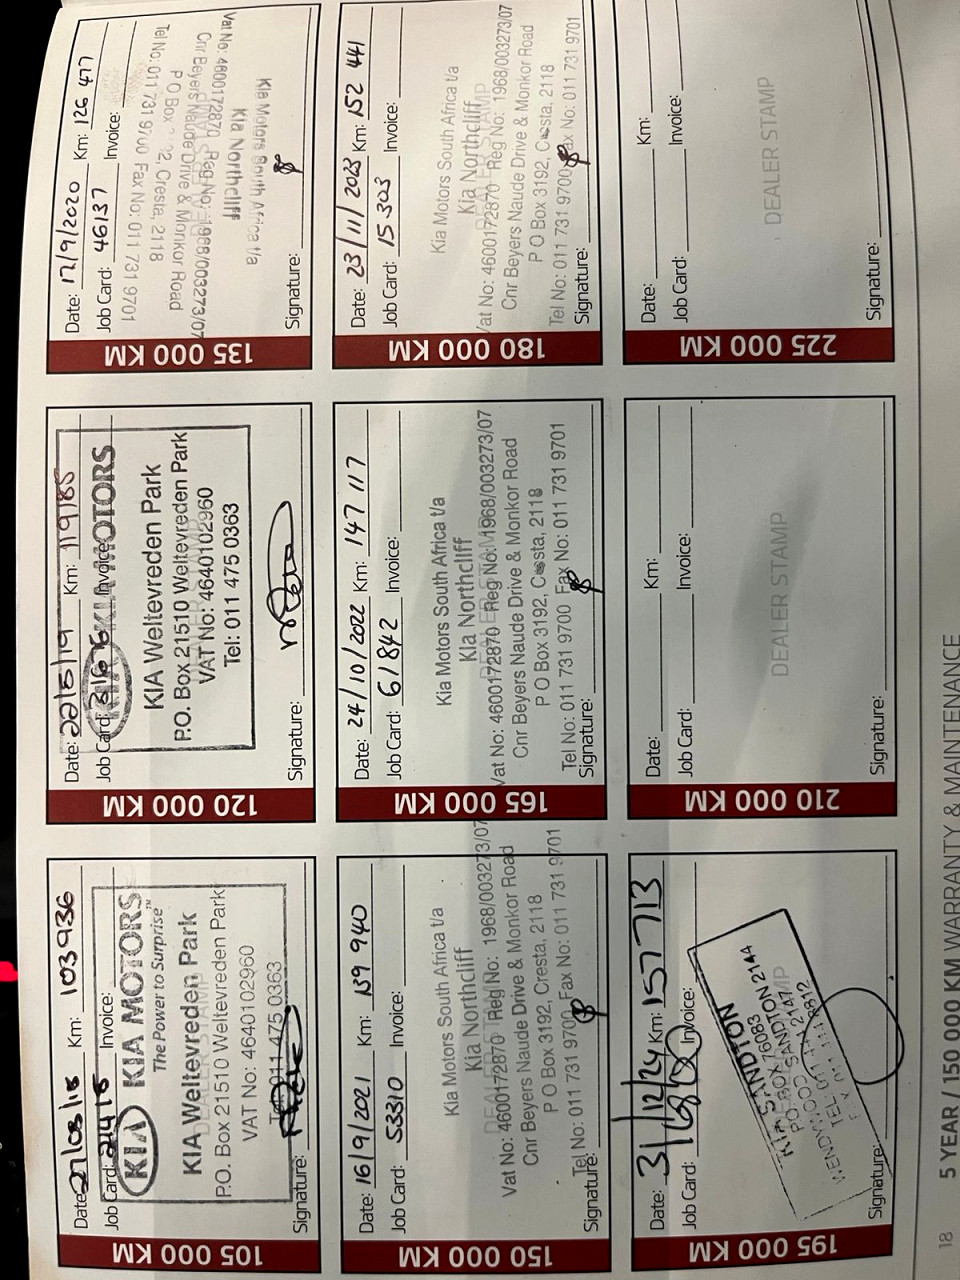 105 000 KM
Date: 27/08/18 Km: 103936
Job Card: Invoice:
KIA KIA MOTORS™
The Power to Surprise
KIA Weltevreden Park
P.O. Box 21510 Weltevreden Park
VAT No: 4640102960
Tel: 011 475 0363
Signature:
120 000 KM
Date: 22/5/19 Km: 119185
Job Card: Invoice:
KIA KIA MOTORS
KIA Weltevreden Park
P.O. Box 21510 Weltevreden Park
VAT No: 4640102960
Tel: 011 475 0363
Signature:
135 000 KM
Date: 17/9/2020 Km: 126 477
Job Card: 46137 Invoice:
Tel No: 011 731 9700 Fax No: 011 731 9701
P O Box 2, Cresta, 2118
Cnr Beyers Naude Drive & Monkor Road
Vat No: 4600172870 Reg No: 1968/003273/07
Kia Northcliff
Kia Motors South Africa t/a
Signature:
150 000 KM
Date: 16/9/2021 Km: 139 940
Job Card: 53310 Invoice:
Kia Motors South Africa t/a
Kia Northcliff
DEALER STAMP
Vat No: 4600172870 Reg No: 1968/003273/07
Cnr Beyers Naude Drive & Monkor Road
P O Box 3192, Cresta, 2118
Tel No: 011 731 9700 Fax No: 011 731 9701
Signature:
165 000 KM
Date: 24/10/2022 Km: 147 117
Job Card: 61842 Invoice:
Kia Motors South Africa t/a
Kia Northcliff
DEALER STAMP
Vat No: 4600172870 Reg No: 1968/003273/07
Cnr Beyers Naude Drive & Monkor Road
P O Box 3192, Cresta, 2118
Tel No: 011 731 9700 Fax No: 011 731 9701
Signature:
180 000 KM
Date: 23/11/2023 Km: 152 441
Job Card: 15303 Invoice:
Kia Motors South Africa t/a
Kia Northcliff
DEALER STAMP
Vat No: 4600172870 Reg No: 1968/003273/07
Cnr Beyers Naude Drive & Monkor Road
P O Box 3192, Cresta, 2118
Tel No: 011 731 9700 Fax No: 011 731 9701
Signature:
195 000 KM
Date: 31/12/24 Km: 157713
Job Card: Invoice:
KIA SANDTON
P.O. BOX 76083
SANDTON 2144
Signature:
210 000 KM
Date: Km:
Job Card: Invoice:
DEALER STAMP
Signature:
225 000 KM
Date: Km:
Job Card: Invoice:
DEALER STAMP
Signature:
18 5 YEAR / 150 000 KM WARRANTY & MAINTENANCE